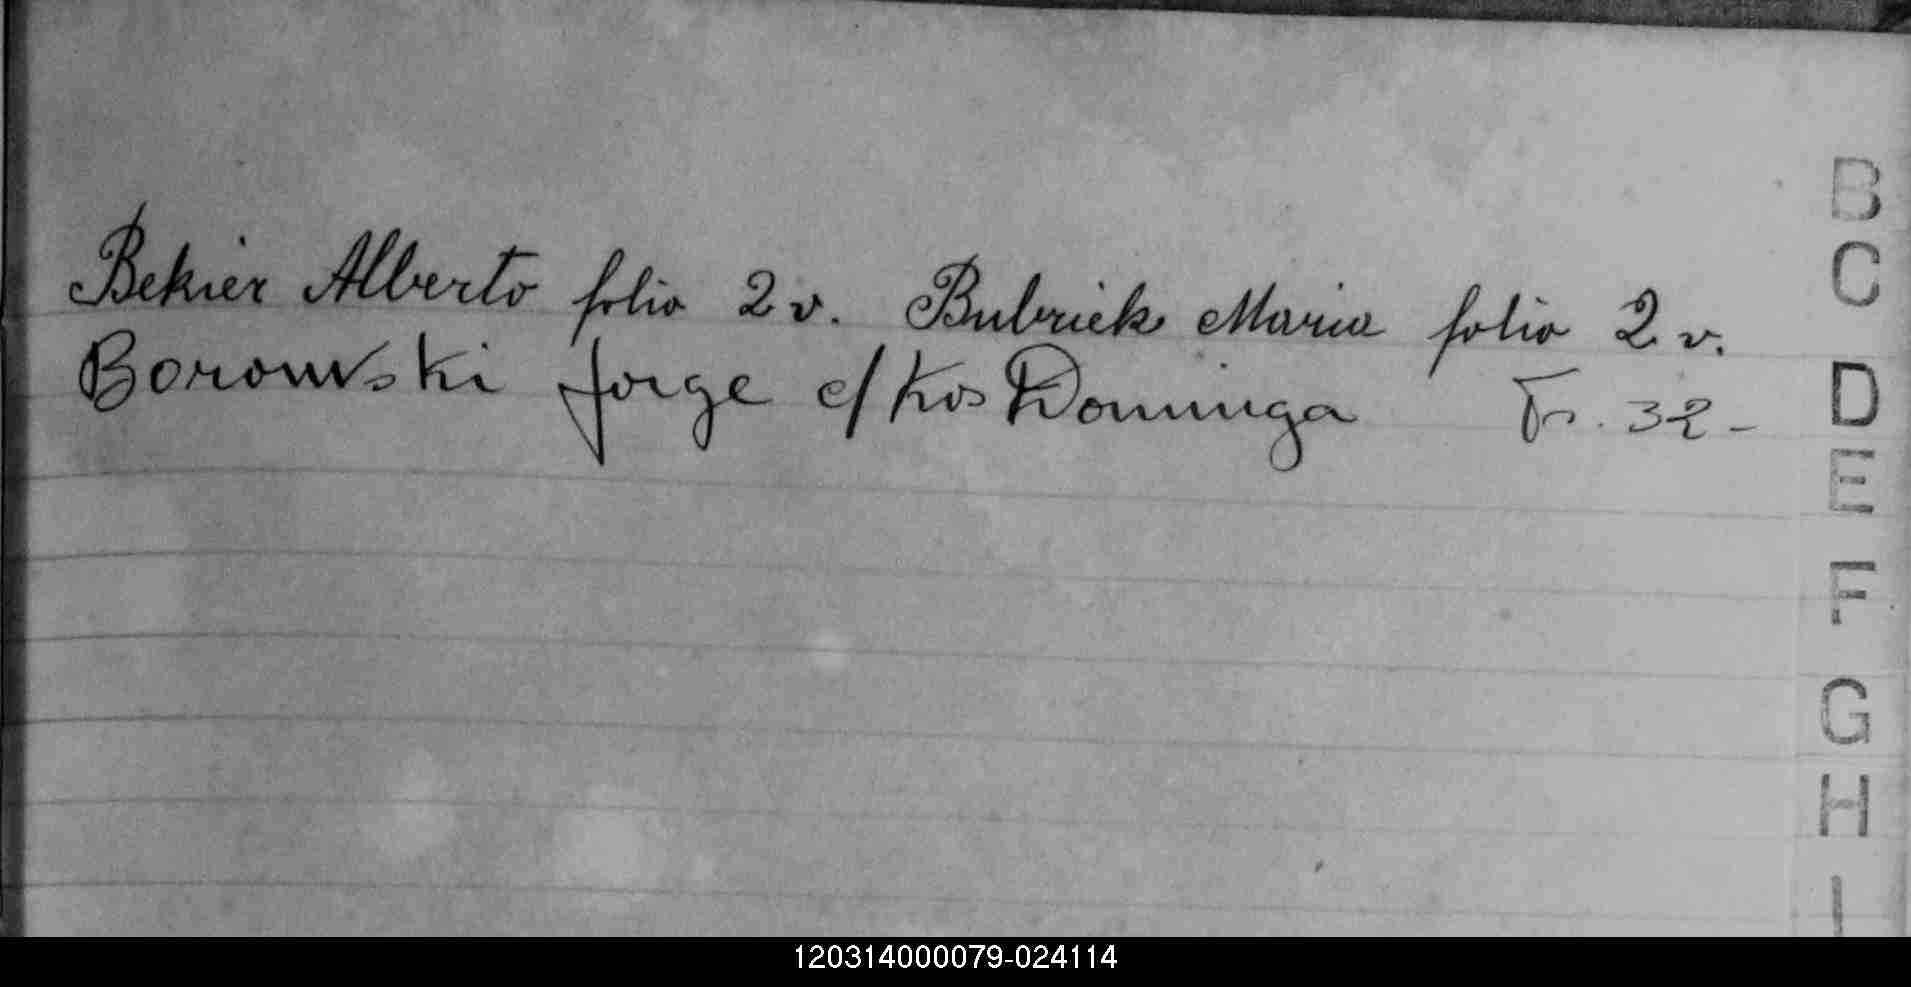 Bekier Alberto folio 2 v. Bubriek Maria folio 2 v.
Borowski Jorge c/ Kos Dominga Fs. 32 -
B
C
D
E
F
G
H
I
120314000079-024114